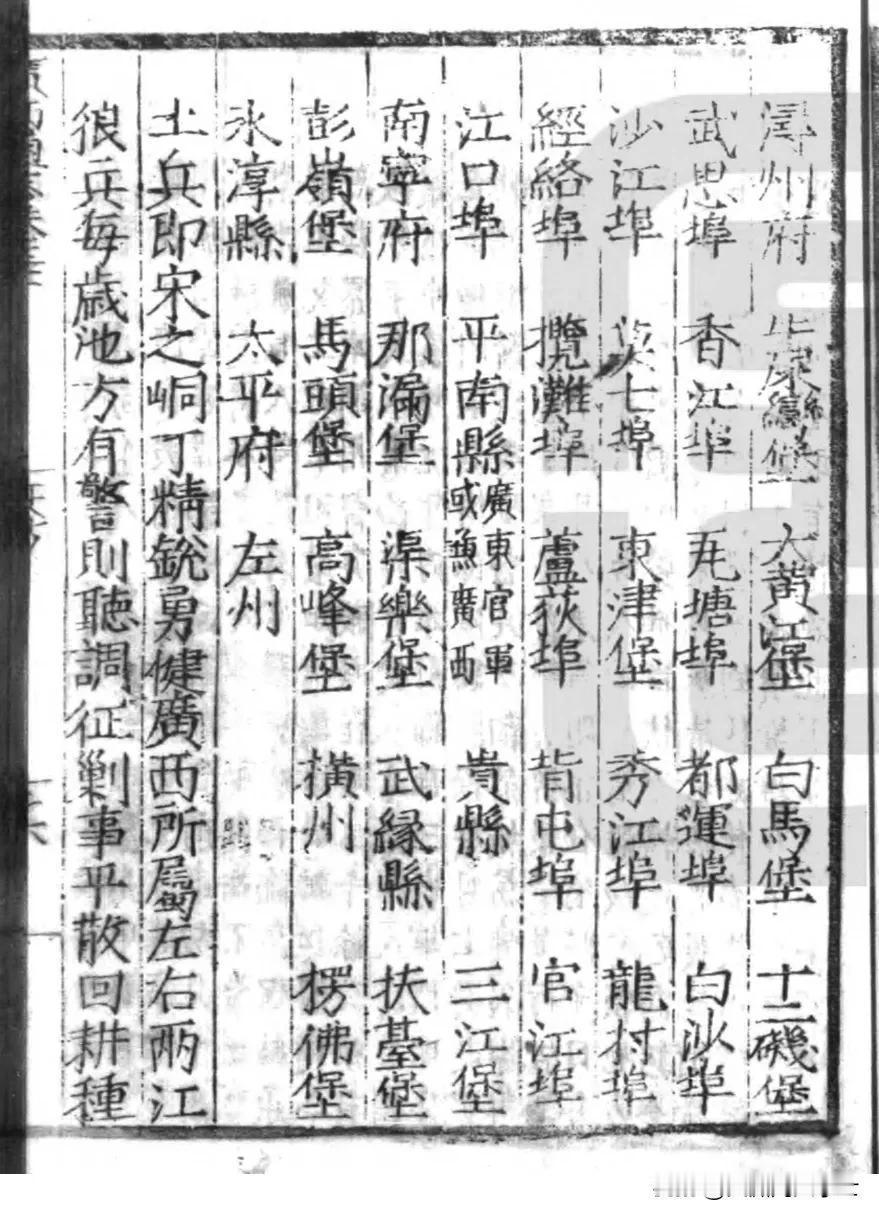 潯州府 牛屎灣堡 大黃江堡 白馬堡 十二磯堡
武思埠 香江埠 瓦塘埠 都運埠 白沙埠
沙江埠 七埠 東津堡 秀江埠 龍村埠
經絡埠 攬灘埠 蘆荻埠 背屯埠 官江埠
江口埠 平南縣 廣東官軍或漁廣西 貴縣 三江堡
南寧府 那漏堡 渠樂堡 武緣縣 扶臺堡
彭嶺堡 馬頭堡 高峰堡 橫州 楞佛堡
永淳縣 太平府 左州
土兵即宋之峒丁精銳勇健廣西所屬左右兩江
狼兵每歲池方有警則聽調征剿事平散回耕種